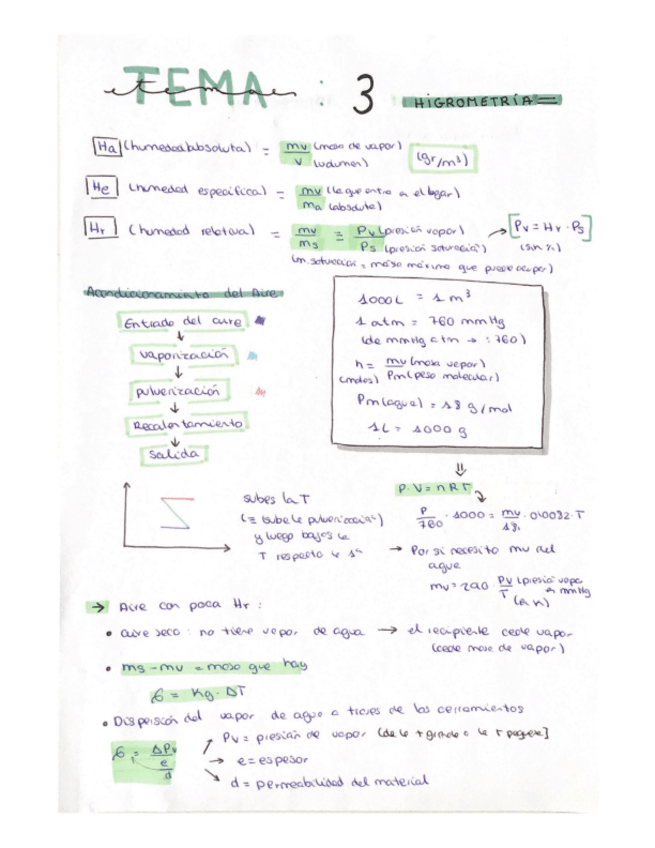 TEMA : 3 HIGROMETRÍA
tema
Ha (humedad absoluta) = mv (masa de vapor) / V (volumen) (gr/m³)
He (humedad especifica) = mv (la que entra en el lugar) / ma (absoluta)
Hr (humedad relativa) = mv / ms = Pv (presión vapor) / Ps (presión saturación) → [Pv = Hr · Ps]
(sin %)
(m. saturación = masa máxima que puede ocupar)
Acondicionamiento del Aire
Entrada del aire
↓
vaporización
↓
pulverización
↓
Recalentamiento
↓
Salida
1000L = 1 m³
1 atm = 760 mmHg
(de mmHg a atm → : 760)
n = mv (masa vapor) / Pm (peso molecular)
(moles)
Pm (agua) = 18 g/mol
1L = 1000 g
⇓
P·V = nRT
P/760 · 1000 = mv/18 · 0'0082 · T
subes la T
(= sube la pulverización)
y luego bajas la
T respecto la 1ª
→ Por si necesito mv del
agua
mv = 290 · Pv (presión vapor en mmHg) / T (en K)
→ Aire con poca Hr :
• aire seco : no tiene vapor de agua → el recipiente cede vapor
(cede masa de vapor)
• ms - mv = masa que hay
G = Kg · ΔT
• Dispersión del vapor de agua a traves de los cerramientos
G = ΔPv / e / d
Pv = presión de vapor [de la + grande a la + pequeña]
→ e = espesor
d = permeabilidad del material